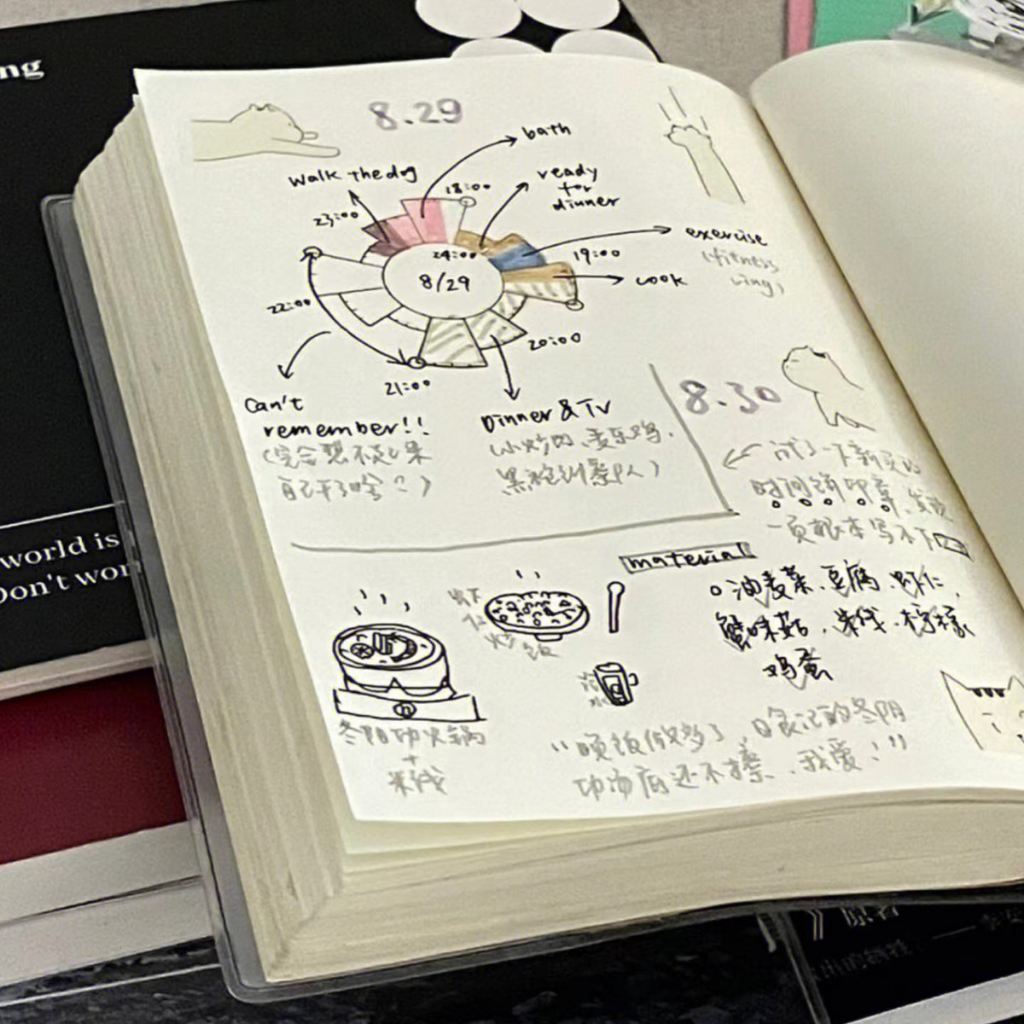 ng
8.29
bath
walk the dog
ready
for
dinner
18:00
23:00
24:00
8/29
exercise
19:00
cook
22:00
20:00
21:00
Can't
remember!!
(完全想不起来
自己干了啥?)
Dinner & TV
(小炒肉、麦乐鸡、
黑袍纠察队)
8.30
试了一下新买的
时间轴印章,发现
一页根本写不下
world is
Don't wor
material
油麦菜、豆腐、虾仁、
蟹味菇、米线、柠檬
鸡蛋
炒饭
冬阴功火锅
+
米线
"晚饭做多了,日食记的冬阴
功汤底还不错、我爱!"